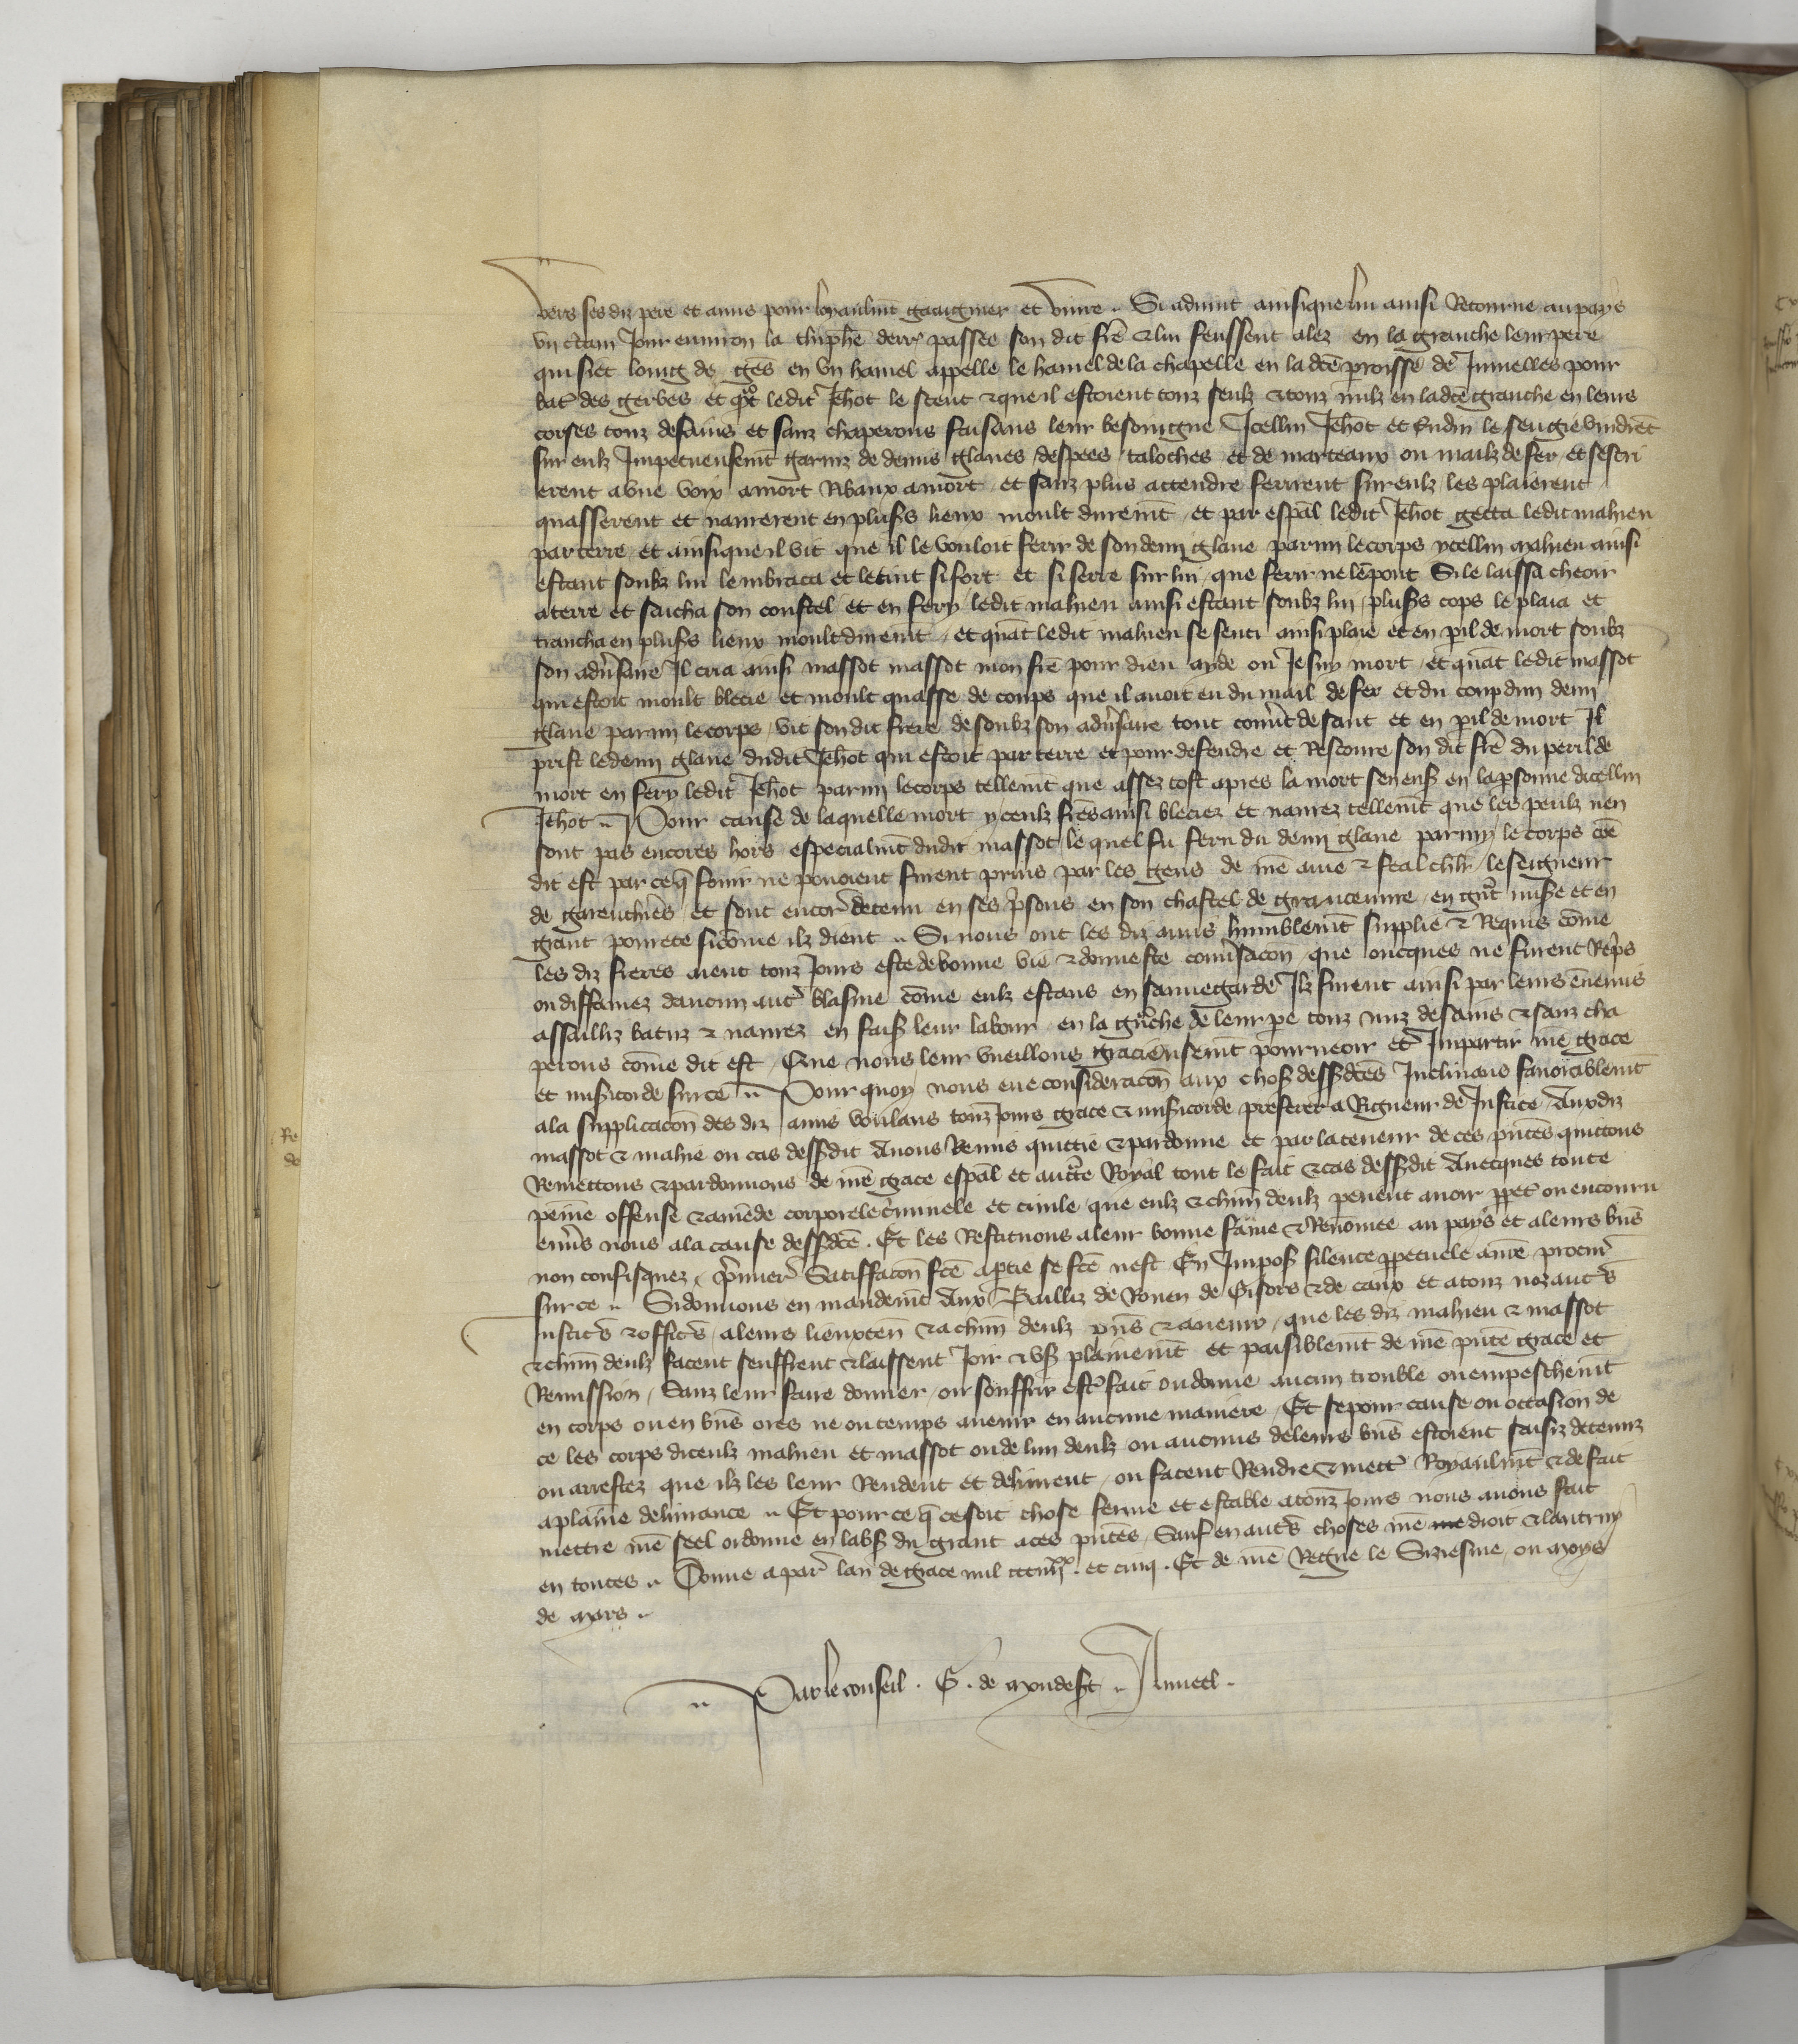 vers ses diz pere et amis pour loyaulmt gaaignier et vivre .. Si advint ainsi que lui ainsi Retourne au pays
un ctain jour environ la thiphe derr passee son dit fre & lui feussent alez en la granche leur pere
qui siet loing de gens en un hamel appelle le hamel de la chapelle en ladce proisse de Jumelles pour
bat des gerbes et quant ledit Jehot le sceut & que il estoient touz seulz & touz nuz en ladce granche en leurs
corses touz desains et sanz chaperons faisans leur besoingne Icellui Jehot et le seugie vindret
sur eulz Impetueusemt garniz de demis glaves despees taloches et de marteaux ou mailz de fer et sescri
erent a une voix a mort Ribaux a mort et sanz plus attendre ferirent sur eulz les plaierent
quasserent et navrerent en pluss lieux moult duremt et par espal ledit Jehot getta ledit mahieu
par terre et ainsi que il vit que il le vouloit ferir de son demi glave parmi le corps ycellui mahieu ainsi
estant soubz lui lembraca et le tint si fort et si serre sur lui que ferir ne le pout Si le laissa cheoir
a terre et sacha son coustel et en fery ledit mahieu ainsi estant soubz lui pluss cops le plaia et
trancha en pluss lieux moult duremt et quat ledit mahieu se senti ainsi plaie et en pil de mort soubz
son advsaire Il cria ainsi massot massot mon fre pour dieu ayde ou Je suy mort et quat ledit massot
qui estoit moult blecie et moult quasse de coups que il avoit eu du mail de fer et du coup dun demi
glave parmi le corps vit son dit frere desoubz son advsaire tout couvt de sanc et en pil de mort Il
prist le demi glave dudit Jehot qui estoit par terre et pour defendre et Rescourre son dit fre du peril de
mort en fery ledit Jehot parmi le corps tellemt que assez tost apres la mort sen ens en la psonne dicellui
Jehot .. Pour cause de laquelle mort yceulz fres ainsi bleciez et navrez tellemt que les peulz nen
sont pas encores hors especialmt dudit massot lequel fu feru du demi glave parmy le corps coe
dit est par ce q fouir ne povoient furent prins par les gens de nre ame & feal chlr le seigneur
de garenchieres et sont encor detenu en ses psons en son chastel de en gnt mise et en
grant povrete si come ilz dient .. Si nous ont les diz amis humblemt supplie & Requis come
les diz freres aient touz jours este de bonne vie & donneste convsacon que oncques ne furent Reps
ou diffamez daucun aut blasme come eulz estans en sauvegarde Ilz furent ainsi par leurs enemis
assailliz batuz & navrez en fais leur labour en la gnche de leur pe touz nuz desains & sanz cha
perons come dit est Que nous leur vueillons gracieusemt pourveoir et Impartir nre grace
et misicorde sur ce .. Pour quoy nous eue consideracon aux chos dessdces Inclinans favorablemt
a la supplicacon des diz amis voulans touz jours grace & misicorde preferer a Rigueur de Justice Aux diz
massot & mahie ou cas dessdit Avons Remis quittie & pardonne et par la teneur de ces pntes quittons
Remettons & pardonnons de nre grace espal et auctte Royal tout le fait & cas dessdit Avecques toute
peine offense & amede corporele criminele et civile que eulz & chun deulz pevent avoir ppet ou encouru
envs nous a la cause dessdce . Et les Restituons a leur bonne fame & Renomee au pays et a leurs bns
non confisquez pmier Satiffacon fce a ptie se fce nest En Impos silence ppetuele a nre procur
sur ce .. Si donnons en mandemt Aux Bailliz de Rouen de Gisors & de caux et a touz noz auts
justics & offics a leurs lieuxten & a chun deulz pns & avenir que les diz mahieu & massot
& chun deulz facent seuffrent & laissent joir & us plainemt et paisiblemt de nre pnte grace et
Remission Sanz leur faire donner ou souffrir est fait ou donne aucun trouble ou empeschemt
en corps ou en bns ores ne ou temps avenir en aucune maniere Et se pour cause ou occasion de
ce les corps diceulz mahieu et massot ou de lun deulz ou aucuns de leurs bns estoient saisiz detenuz
ou arrestez que ilz les leur Rendent et delivrent ou facent Rendre & mett Royaulmt & de fait
a plaine delivrance .. Et pour ce q ce soit chose ferme et estable a touz jours nous avons fait
mettre nre seel ordonne en labs du grant a ces pntes Sauf en auts choses nre droit & lautruy
en toutes .. Donne a par lan de grace mil ccciiiixx. et cinq . Et de nre Regne le Siziesme ou moys
de mars ..
.. Par le conseil . G . de mondest .. Anucel .
Re
do